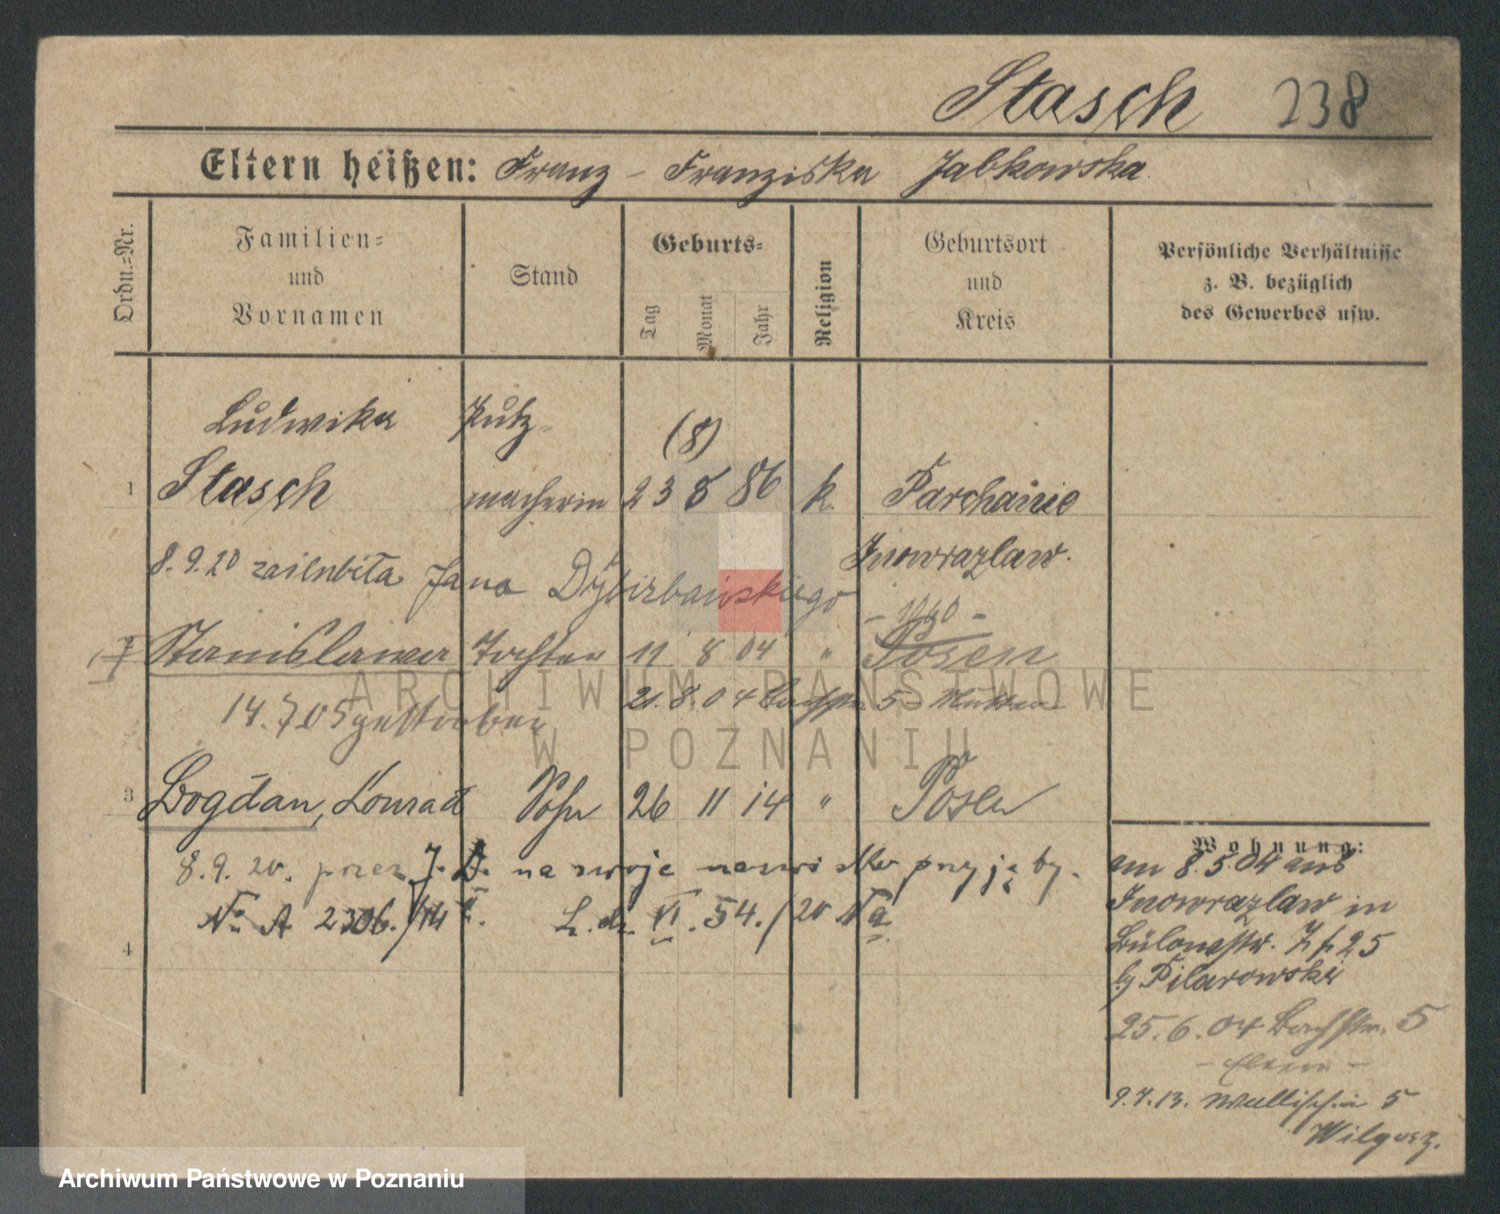 Stasch 238
Eltern heißen: Franz - Franziska Jabkowska
Ordn.=Nr.
Familien=
und
Vornamen
Stand
Geburts=
Tag
Monat
Jahr
Religion
Geburtsort
und
Kreis
Persönliche Verhältnisse
z. B. bezüglich
des Gewerbes usw.
Ludwika Putz-
(8)
1 Stasch macherin 23 8 86 k. Parchanie
Inowrazlaw.
8.9.20 zaślubiła Jana
Stanislawa Tochter 11 8 04 " Posen
21.8.04 Bachstr. 5
14.7.05 gestorben
3 Bogdan, Konrad Sohn 26 11 14 " Posen
8.9.20. przez J. D. na swoje nazwisko przyjęty.
No A 2306./14 L. dz. VI. 54./20 
4
Wohnung:
am 8.5.04 aus
Inowrazlaw in
Bülowstr. 25
b/ Pilarowski
25.6.04 Bachstr. 5
- Eltern -
9.7.13. Wallischei 5
ARCHIWUM PAŃSTWOWE
W POZNANIU
Archiwum Państwowe w Poznaniu